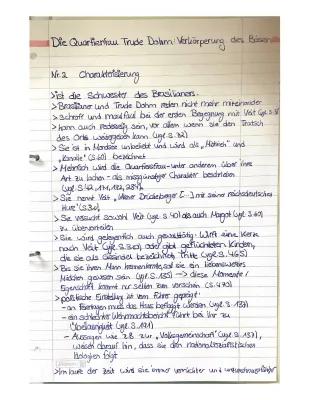 Die Quartierfrau Trude Dohm: Verkörperung des Bösen
Nr. 2 Charakterisierung
>ist die Schwester des Brasilianers.
>Brasilianer und Trude Dohm reden nicht mehr miteinander
>Schroff und maulfaul bei der ersten Begegnung mit Veit (vgl. S.
>kann auch redselig sein, vor allem wenn sie den Tratsch
des Orts weitergeben kann (vgl. S. 82)
>Sie ist in Mondsee unbeliebt und wird als "
Kanaille" (S.60) bezeichnet
>Mehrfach wird die Quartiersfrau unter anderem über ihre
Art zu lachen - als missgünstiger Charakter beschrieben
(vgl. S.42,
>Sie nennt Veit „Wiener Drückeberger [...] mit seiner reichsdeutschen
Hure" (S.
>Sie versucht sowohl Veit (vgl. S. 40) als auch Margot (vgl. S.60)
zu übervorteilen
>Sie wird gelegentlich auch gewalttätig: Wirft eine Kerze
nach Veit (vgl. S.330), oder gibt geflüchteten Kindern,
die sie als Gesindel bezeichnet, Tritte (vgl. S.465)
>Bis sie ihren Mann kennenlernte, soll sie ein liebenswertes
Mädchen gewesen sein (vgl. S.135) → diese Momente /
Eigenschaft kommt nur selten zum vorschein (S.470)
>politische Einstellung ist vom Führer geprägt:
- an Feiertagen muss das Haus beflaggt werden (vgl. S. 137)
- ein schlechter Wehrmachtsbericht führt bei ihr zu
Übellaunigkeit (vgl. S.121)
- Aussagen wie z.B. zur „Volksgemeinschaft" (vgl. S.137),
weisen darauf hin, dass sie den nationalsozialistischen
Ideologien folgt
>Im Laufe der Zeit wird sie immer verrückter und